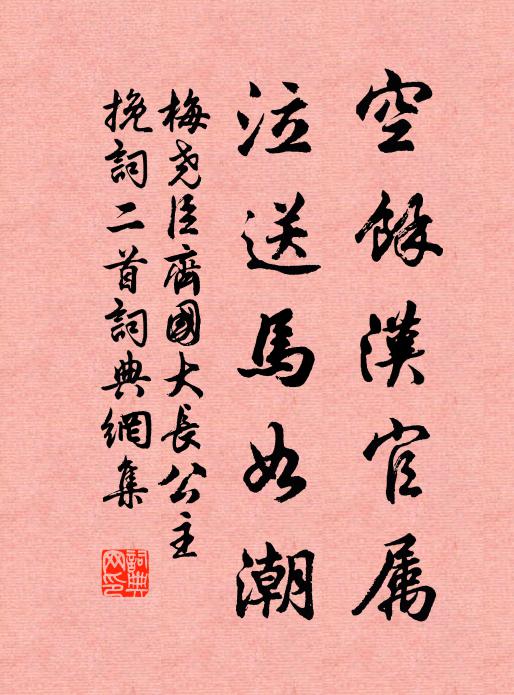 空餘漢官属
泣送馬如潮
梅尭臣齊國大長公主
挽詞二首詞典網集
詞典网印